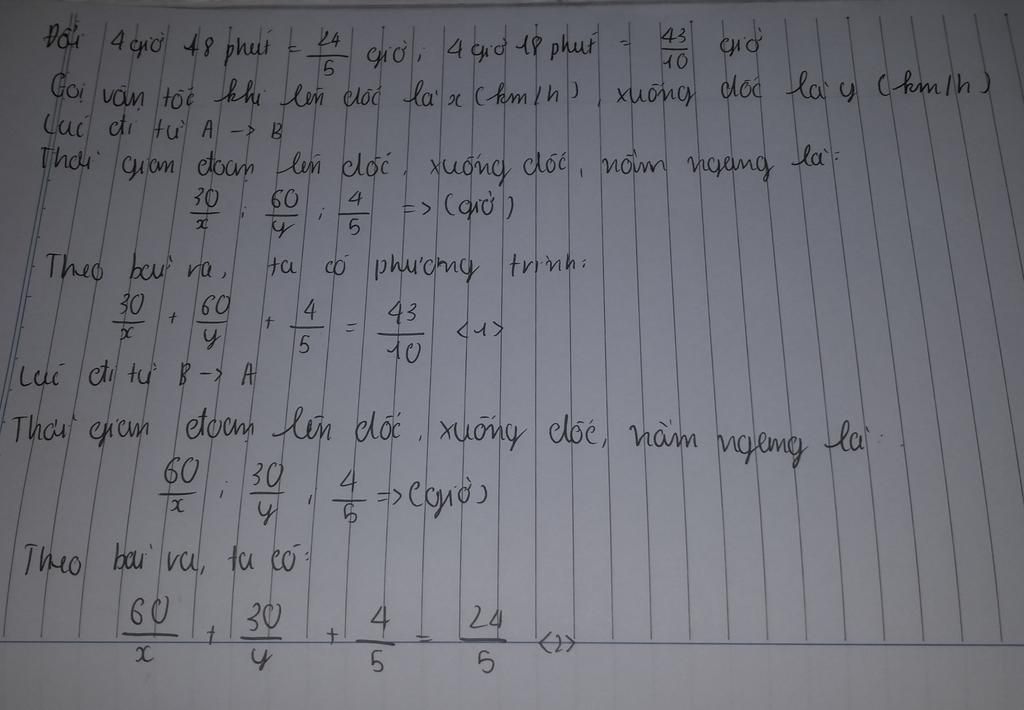 Đổi 4 giờ 48 phút = 24/5 giờ; 4 giờ 18 phút = 43/10 giờ
Gọi vận tốc khi lên dốc là x (km/h), xuống dốc là y (km/h)
Lúc đi từ A -> B
Thời gian đoạn lên dốc, xuống dốc, nằm ngang là:
30/x ; 60/y ; 4/5 => (giờ)
Theo bài ra, ta có phương trình:
30/x + 60/y + 4/5 = 43/10 <1>
Lúc đi từ B -> A
Thời gian đoạn lên dốc, xuống dốc, nằm ngang là:
60/x ; 30/y ; 4/5 => (giờ)
Theo bài ra, ta có:
60/x + 30/y + 4/5 = 24/5 <2>